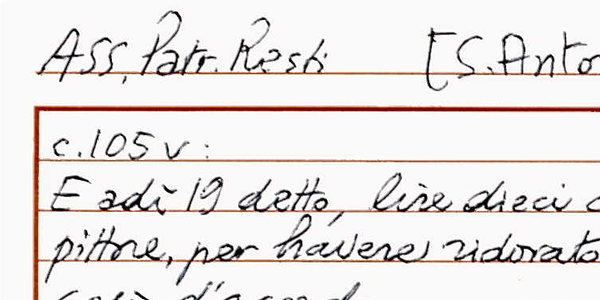 Ass. Patr. Resti [S. Anto
c. 105 v:
E adì 19 detto, lire dieci
pittore, per havere ridorato
così d'accord